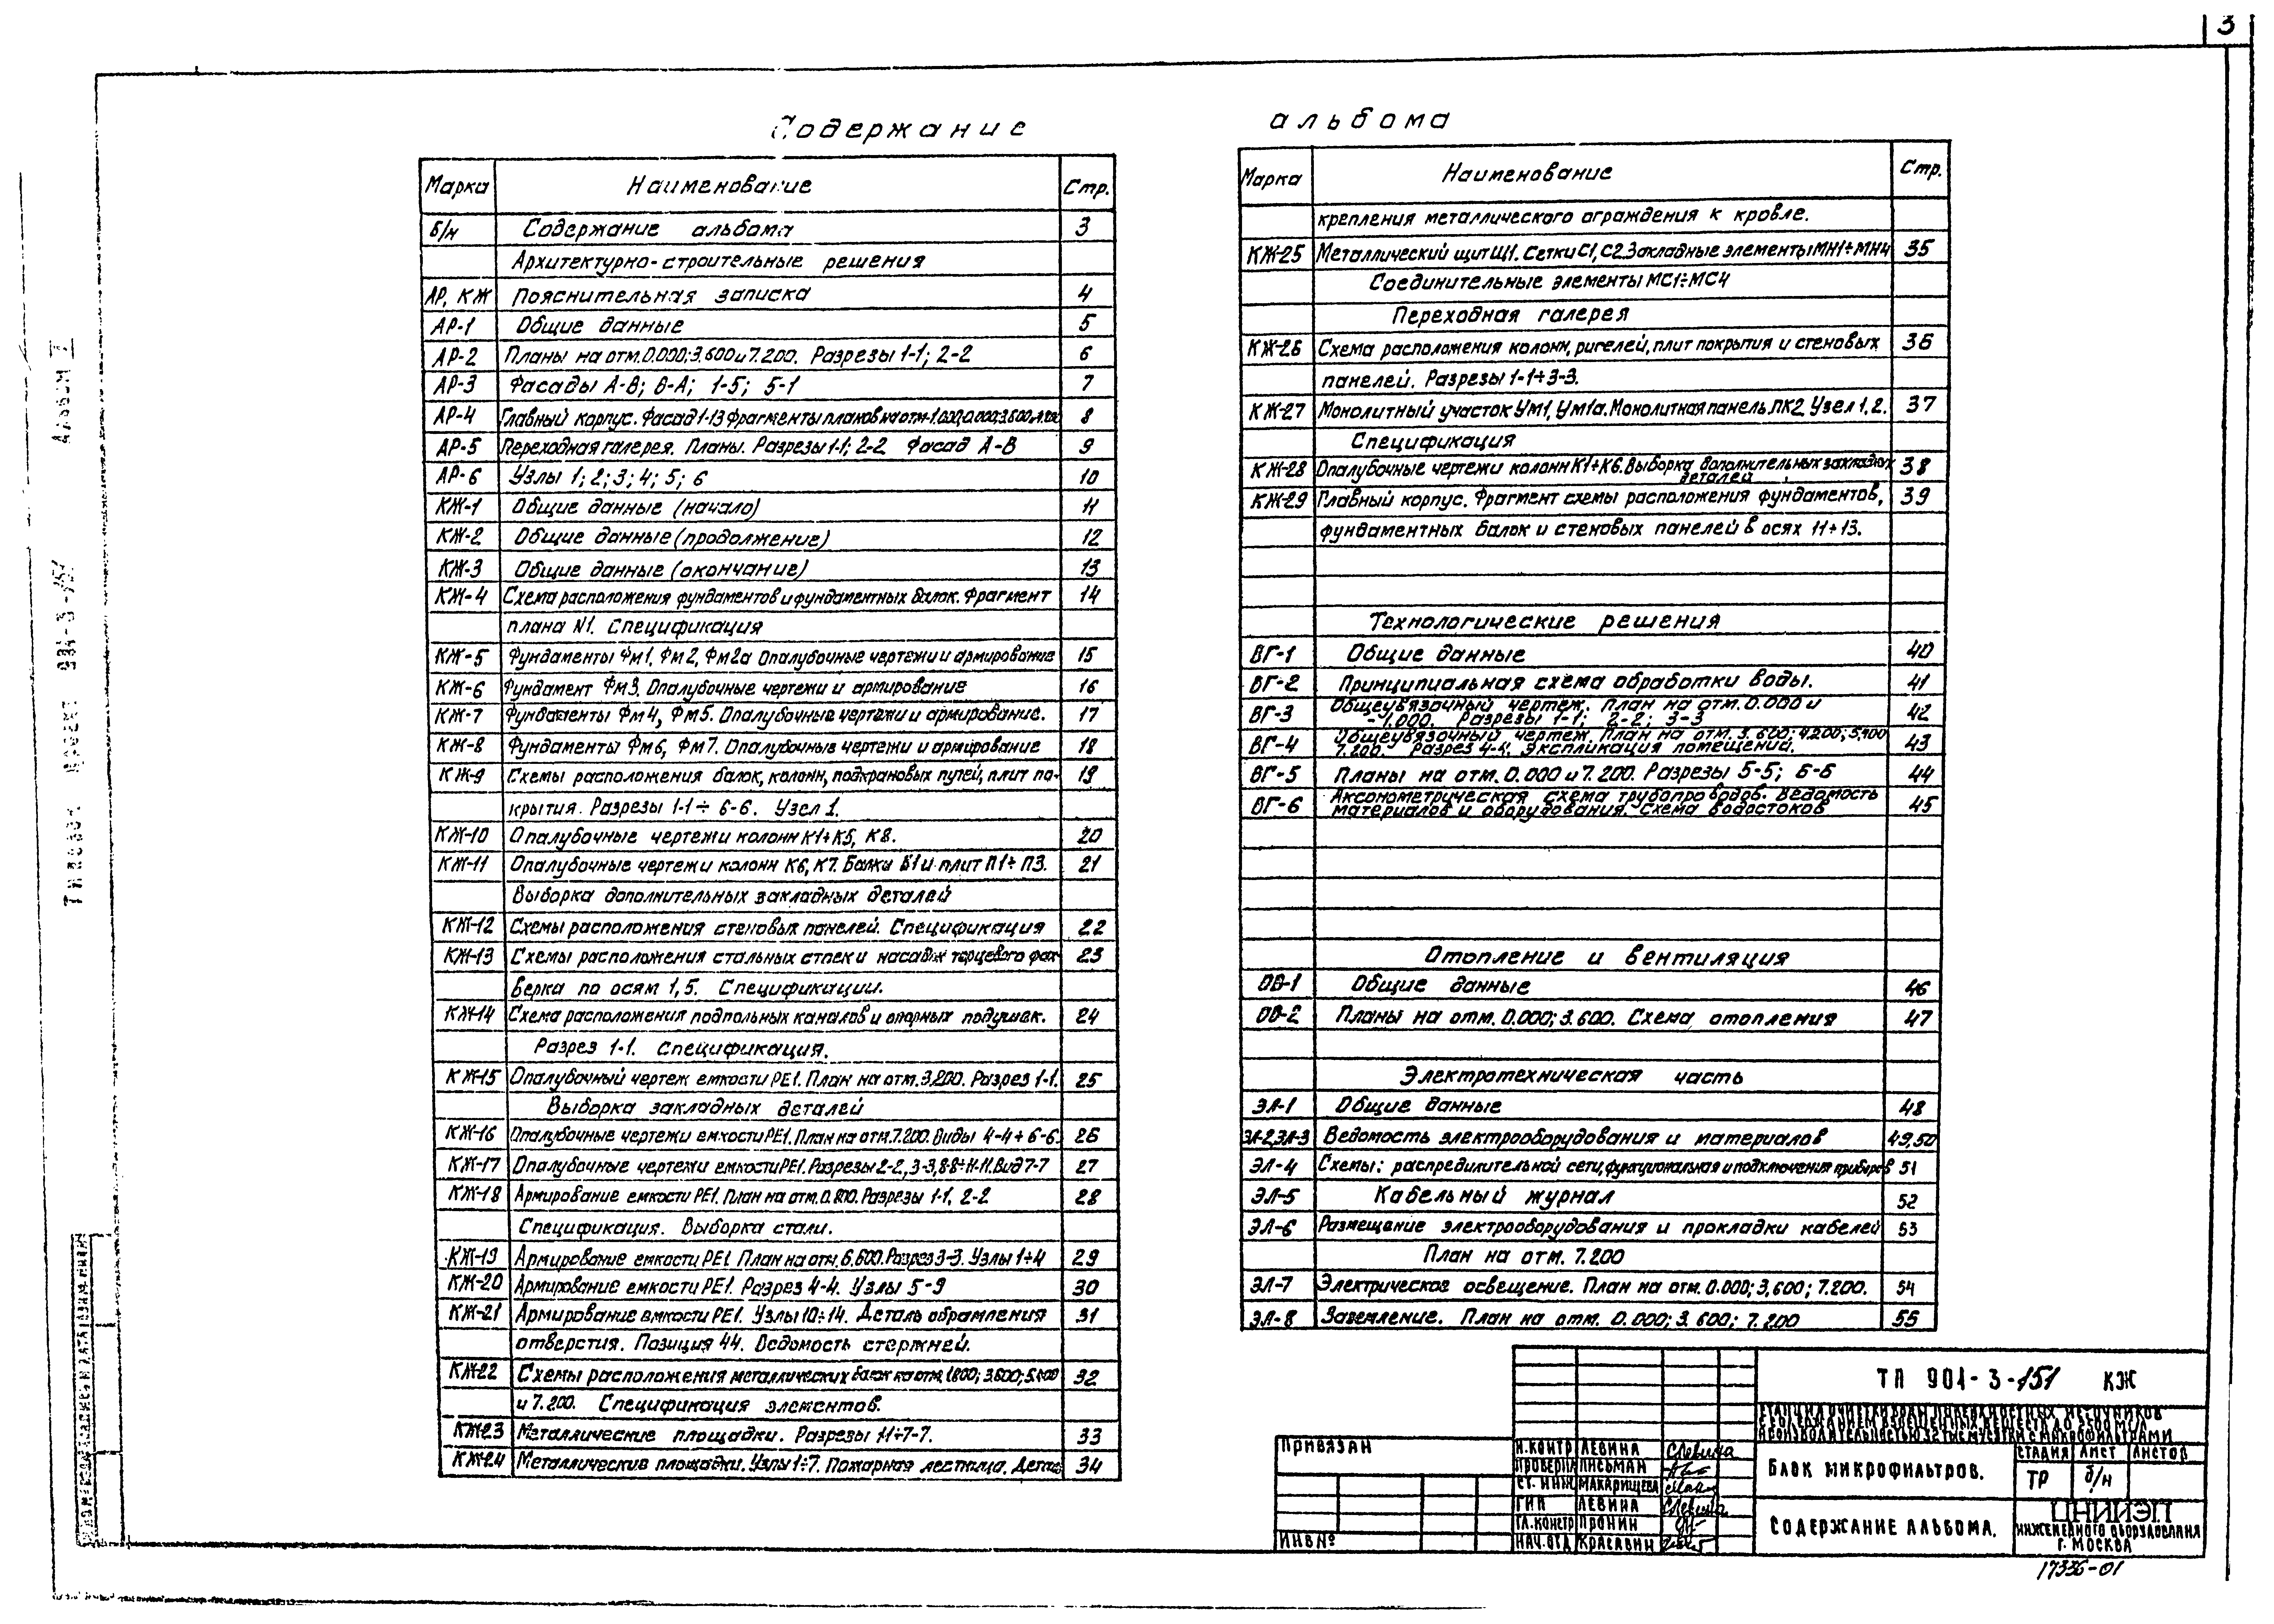 3
Содержание альбома
Марка Наименование Стр.
б/н Содержание альбома 3
Архитектурно-строительные решения
АР, КЖ Пояснительная записка 4
АР-1 Общие данные 5
АР-2 Планы на отм. 0.000; 3.600 и 7.200. Разрезы 1-1; 2-2 6
АР-3 Фасады А-В; В-А; 1-5; 5-1 7
АР-4 Главный корпус. Фасад 1-13 Фрагменты планов на отм. 8
АР-5 Переходная галерея. Планы. Разрезы 1-1; 2-2 Фасад А-В 9
АР-6 Узлы 1; 2; 3; 4; 5; 6 10
КЖ-1 Общие данные (начало) 11
КЖ-2 Общие данные (продолжение) 12
КЖ-3 Общие данные (окончание) 13
КЖ-4 Схема расположения фундаментов и фундаментных балок. Фрагмент 14
плана N1. Спецификация
КЖ-5 Фундаменты Фм1, Фм2, Фм2а Опалубочные чертежи и армирование 15
КЖ-6 Фундамент Фм3. Опалубочные чертежи и армирование 16
КЖ-7 Фундаменты Фм4, Фм5. Опалубочные чертежи и армирование. 17
КЖ-8 Фундаменты Фм6, Фм7. Опалубочные чертежи и армирование 18
КЖ-9 Схемы расположения балок, колонн, подкрановых путей, плит по- 19
крытия. Разрезы 1-1÷6-6. Узел 1.
КЖ-10 Опалубочные чертежи колонн К1÷К5, К8. 20
КЖ-11 Опалубочные чертежи колонн К6, К7. Балки Б1 и плит П1÷П3. 21
Выборка дополнительных закладных деталей
КЖ-12 Схемы расположения стеновых панелей. Спецификация 22
КЖ-13 Схемы расположения стальных стоек и насадок торцевого фах- 23
верка по осям 1, 5. Спецификации.
КЖ-14 Схема расположения подпольных каналов и опорных подушек. 24
Разрез 1-1. Спецификация.
КЖ-15 Опалубочный чертеж емкости РЕ1. План на отм. 3.200. Разрез 1-1. 25
Выборка закладных деталей
КЖ-16 Опалубочные чертежи емкости РЕ1. План на отм. 7.200. Виды 4-4÷6-6. 26
КЖ-17 Опалубочные чертежи емкости РЕ1. Разрезы 2-2, 3-3, 8-8÷11-11. Вид 7-7 27
КЖ-18 Армирование емкости РЕ1. План на отм. 0.800. Разрезы 1-1, 2-2 28
Спецификация. Выборка стали.
КЖ-19 Армирование емкости РЕ1. План на отм. 6.600. Разрез 3-3. Узлы 1÷4 29
КЖ-20 Армирование емкости РЕ1. Разрез 4-4. Узлы 5-9 30
КЖ-21 Армирование емкости РЕ1. Узлы 10÷14. Деталь обрамления 31
отверстия. Позиция 44. Ведомость стержней.
КЖ-22 Схемы расположения металлических балок на отм. 1.800; 3.600; 5.400 32
и 7.200. Спецификация элементов.
КЖ-23 Металлические площадки. Разрезы 1-1÷7-7. 33
КЖ-24 Металлические площадки. Узлы 1÷7. Пожарная лестница. 34
Марка Наименование Стр.
крепления металлического ограждения к кровле.
КЖ-25 Металлический щит Щ1. Сетки С1, С2. Закладные элементы МН1÷МН4 35
Соединительные элементы МС1÷МС4
Переходная галерея
КЖ-26 Схема расположения колонн, ригелей, плит покрытия и стеновых 36
панелей. Разрезы 1-1÷3-3.
КЖ-27 Монолитный участок Ум1, Ум1а. Монолитная панель ПК2. Узел 1, 2. 37
Спецификация
КЖ-28 Опалубочные чертежи колонн К1÷К6. Выборка дополнительных закладных 38
деталей
КЖ-29 Главный корпус. Фрагмент схемы расположения фундаментов, 39
фундаментных балок и стеновых панелей в осях 11÷13.
Технологические решения
ВГ-1 Общие данные 40
ВГ-2 Принципиальная схема обработки воды. 41
ВГ-3 Общеувязочный чертеж. План на отм. 0.000 и 42
-1.000. Разрезы 1-1; 2-2; 3-3
ВГ-4 Общеувязочный чертеж. План на отм. 3.600; 4.200; 5.400 43
7.200 Разрез 4-4. Экспликация помещений.
ВГ-5 Планы на отм. 0.000 и 7.200. Разрезы 5-5; 6-6 44
ВГ-6 Аксонометрическая схема трубопроводов. Ведомость 45
материалов и оборудования. Схема водостоков
Отопление и вентиляция
ОВ-1 Общие данные 46
ОВ-2 Планы на отм. 0.000; 3.600. Схема отопления 47
Электротехническая часть
ЭЛ-1 Общие данные 48
ЭЛ-2, ЭЛ-3 Ведомость электрооборудования и материалов 49, 50
ЭЛ-4 Схемы: распределительной сети, функциональная и подключения приборов 51
ЭЛ-5 Кабельный журнал 52
ЭЛ-6 Размещение электрооборудования и прокладки кабелей 53
План на отм. 7.200
ЭЛ-7 Электрическое освещение. План на отм. 0.000; 3,600; 7.200. 54
ЭЛ-8 Заземление. План на отм. 0.000; 3.600; 7.200 55
Альбом I
Типовой проект 901-3-151
ТП 901-3-151 КЖ
СТАНЦИЯ ОЧИСТКИ ВОДЫ ПОВЕРХНОСТНЫХ ИСТОЧНИКОВ
С СОДЕРЖАНИЕМ ВЗВЕШЕННЫХ ВЕЩЕСТВ ДО
ПРОИЗВОДИТЕЛЬНОСТЬЮ 32 ТЫС М3/СУТКИ С МИКРОФИЛЬТРАМИ
БЛОК МИКРОФИЛЬТРОВ.
СТАДИЯ ЛИСТ ЛИСТОВ
ТР б/н
СОДЕРЖАНИЕ АЛЬБОМА.
ЦНИИЭП
ИНЖЕНЕРНОГО ОБОРУДОВАНИЯ
Г. МОСКВА
ПРИВЯЗАН
ИНВ №
Н.КОНТР ЛЕВИНА
ПРОВЕРИЛ ПИСЬМАН
СТ. ИНЖ МАКАРИЩЕВА
ГИП ЛЕВИНА
ГЛ.КОНСТР ПРОНИН
НАЧ.ОТД КРАСАВИН
17336-01